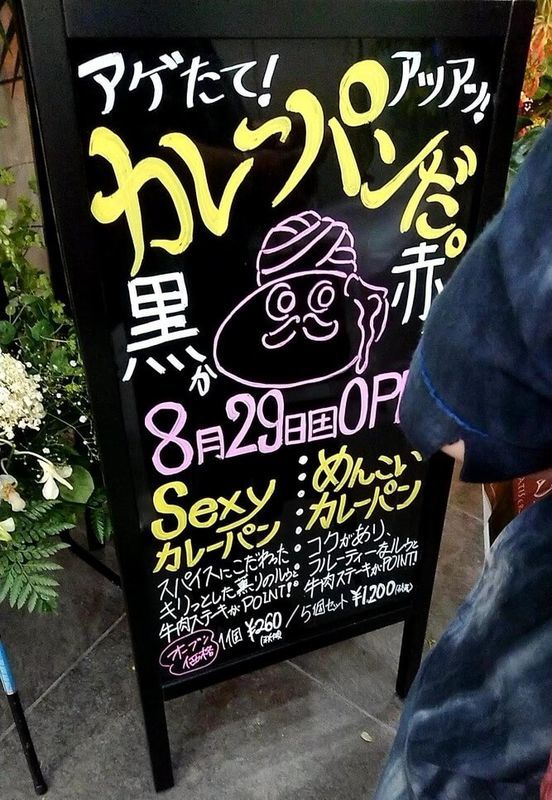 アゲたて！
アツアツ！
カレーパンだ。
黒か
赤
8月29日土OPE
Sexy
カレーパン
スパイスにこだわった
キリッとした薫りのルゥと
牛肉ステーキがPOINT!
めんこい
カレーパン
コクがあり、
フルーティーなルゥと
牛肉ステーキがPOINT!
オープン
価格
1個 ¥260 / 5個セット ¥1,200